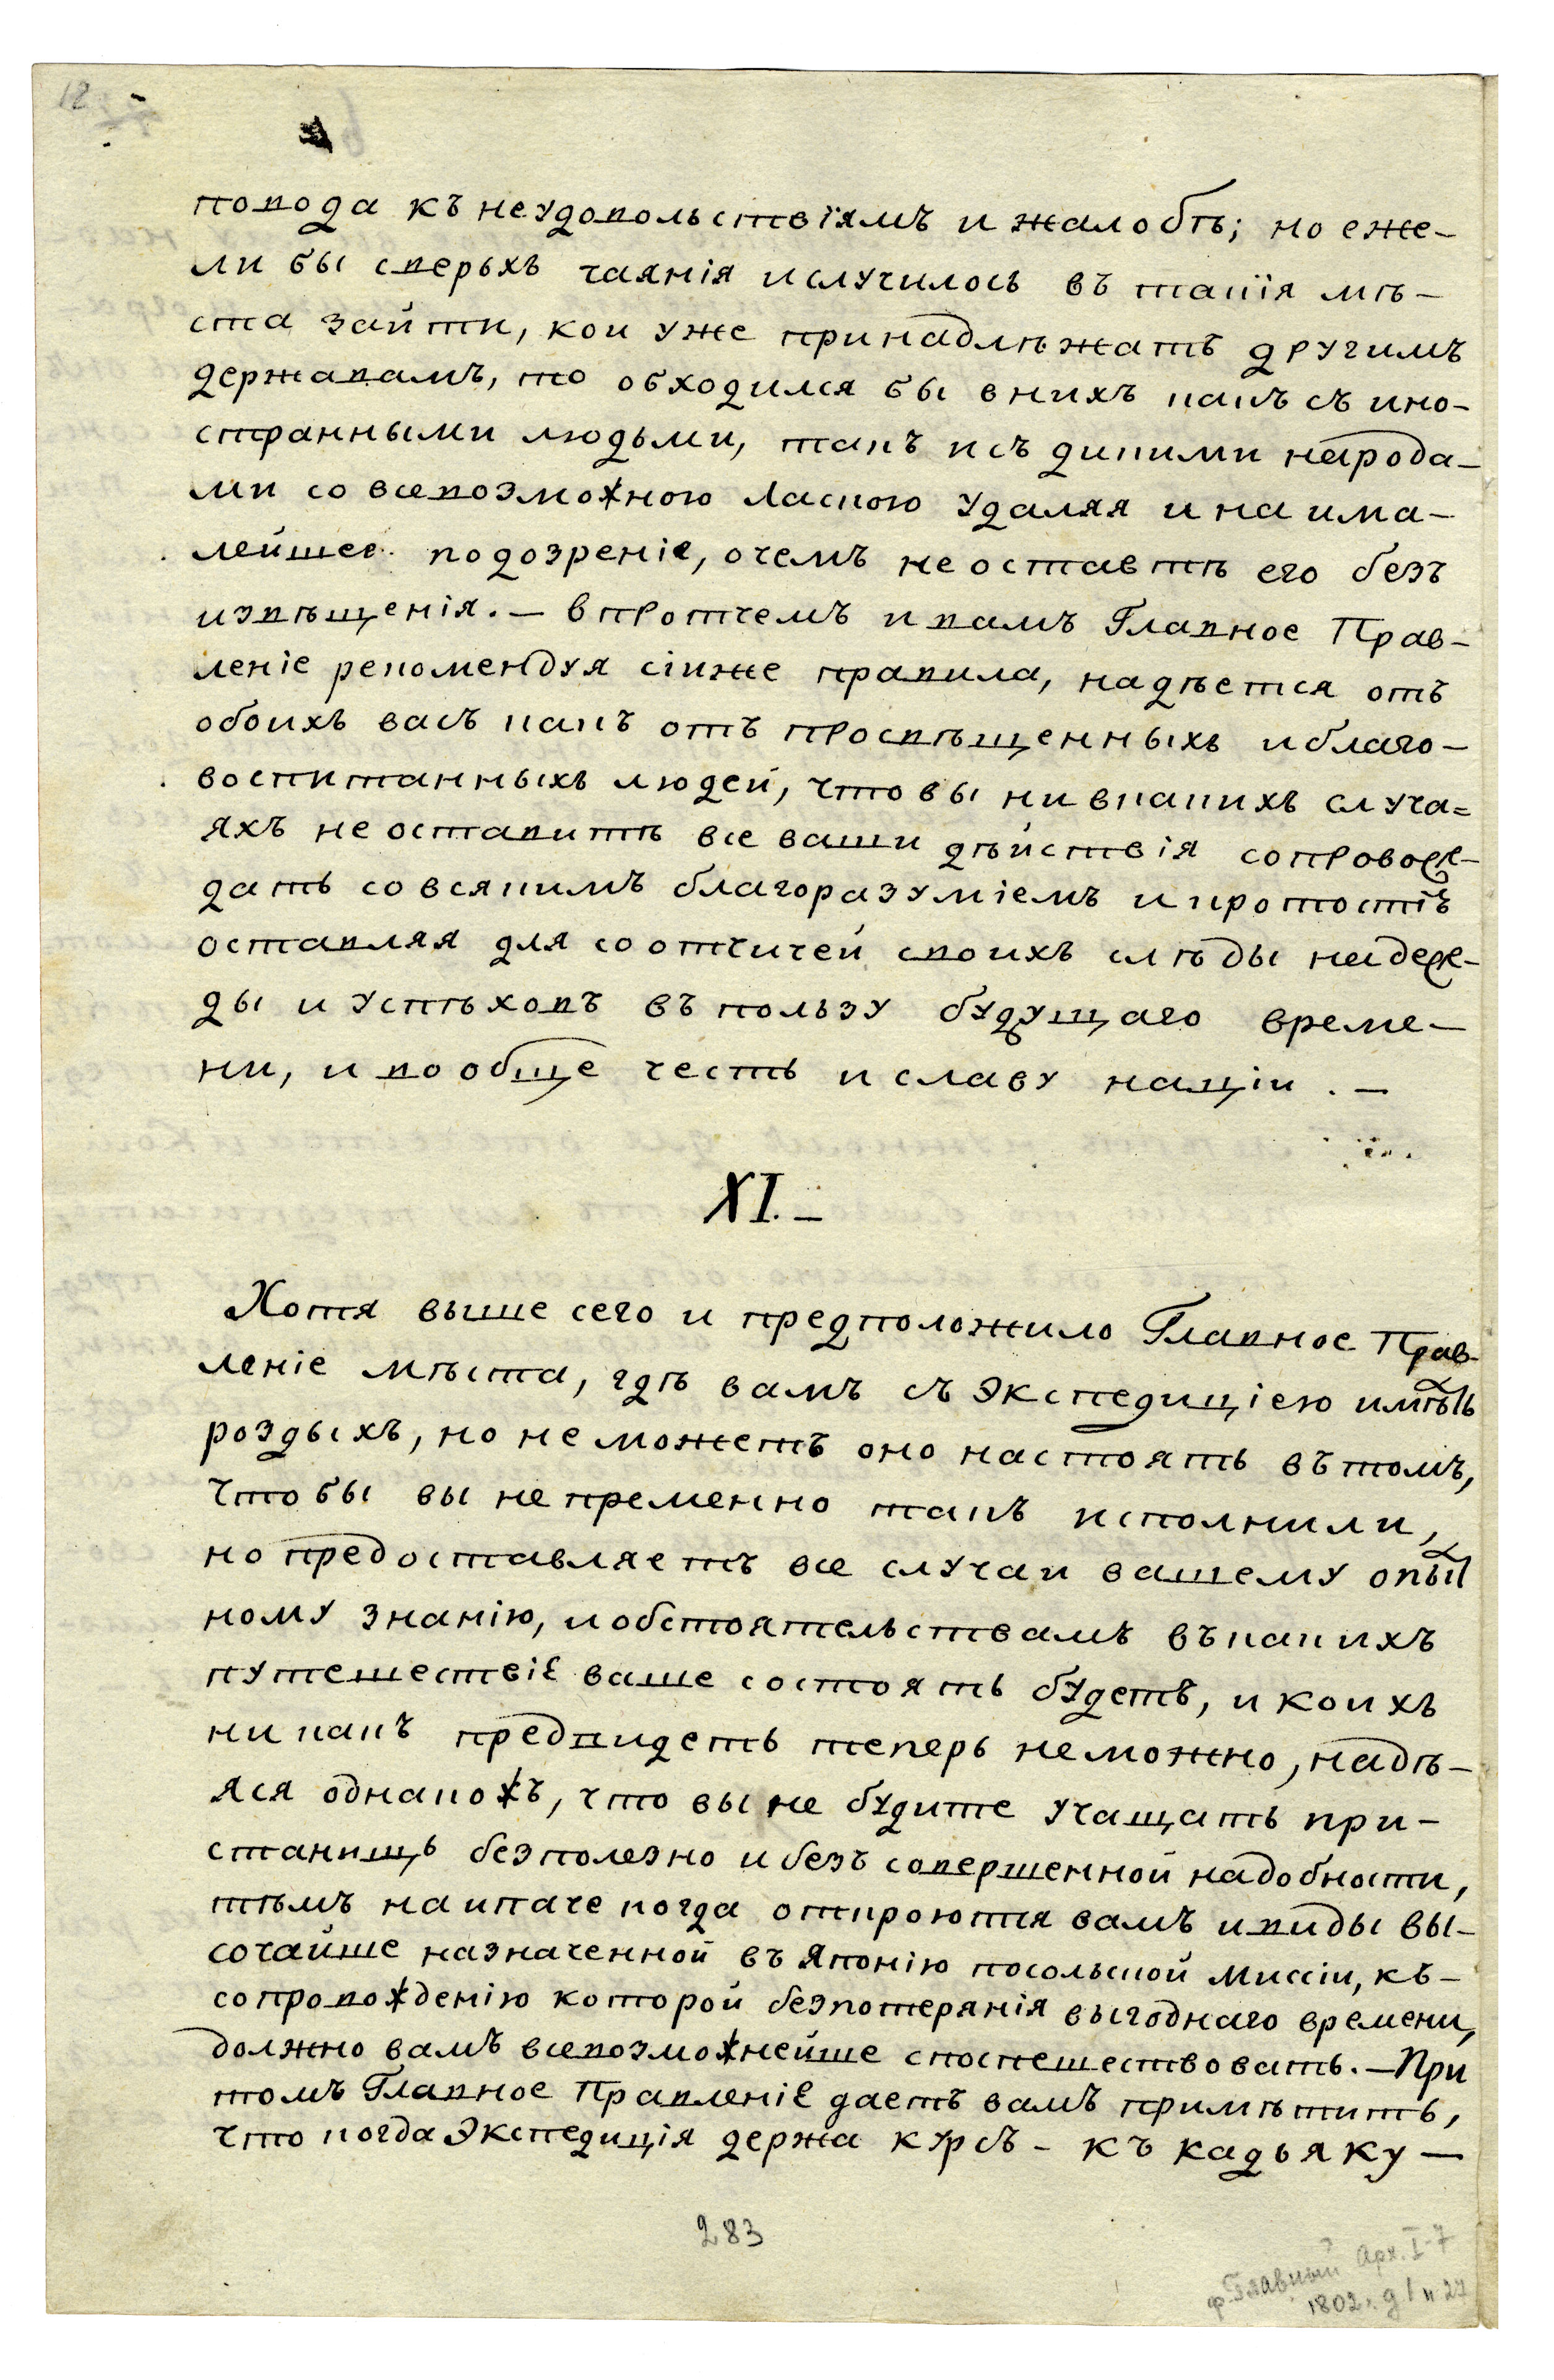 12
повода къ неудовольствіямъ и жалобѣ; но еже-
ли бы сверьхъ чаянія и случилось въ такія мѣ-
ста зайти, кои уже принадлѣжатъ другимъ
державамъ, то обходился бы в нихъ какъ съ ино-
странными людьми, такъ и съ дикими народа-
ми со всевозможною ласкою удаляя и наима-
лейшее подозреніе, о чемъ не оставтѣ его безъ
извѣщенія. — Впротчемъ и вамъ Главное Прав-
леніе рекомендуя сіиже правила, надѣется отъ
обоихъ васъ какъ отъ просвѣщенныхъ и благо-
воспитанныхъ людей, что вы ни в какихъ случа=
яхъ не оставитѣ все ваши дѣйствія сопровож-
дать со всякимъ благоразуміемъ и кротостію
оставляя для соотчичей своихъ слѣды надеж-
ды и успѣховъ въ пользу будущаго време-
ни, и вообще честь и славу націи. —
XI. —
Хотя выше сего и предположило Главное Прав-
леніе мѣста, гдѣ вамъ съ Экспедиціею имѣть
роздыхъ, но не можетъ оно настоять въ томъ,
чтобы вы непременно такъ исполнили,
но предоставляетъ все случаи вашему опыт
ному знанію, и обстоятельствамъ въ какихъ
путешествіе ваше состоять будетъ, и коихъ
ни какъ предвидеть теперь неможно, надѣ-
яся однакожъ, что вы не будите учащать при-
станищь безполезно и безъ совершенной надобности,
тѣмъ наипаче когда откроются вамъ и виды вы-
сочайше назначенной въ Японію посольской миссіи, къ-
сопровожденію которой безпотерянія выгоднаго времени,
должно вамъ всевозможнейше споспешествовать. — При
томъ Главное Правленіе даетъ вамъ примѣтить,
что когда Экспедиція держа курсъ - къ Кадьяку —
283
ф. Главный Арх. I-7
1802 г. д 1 п 27